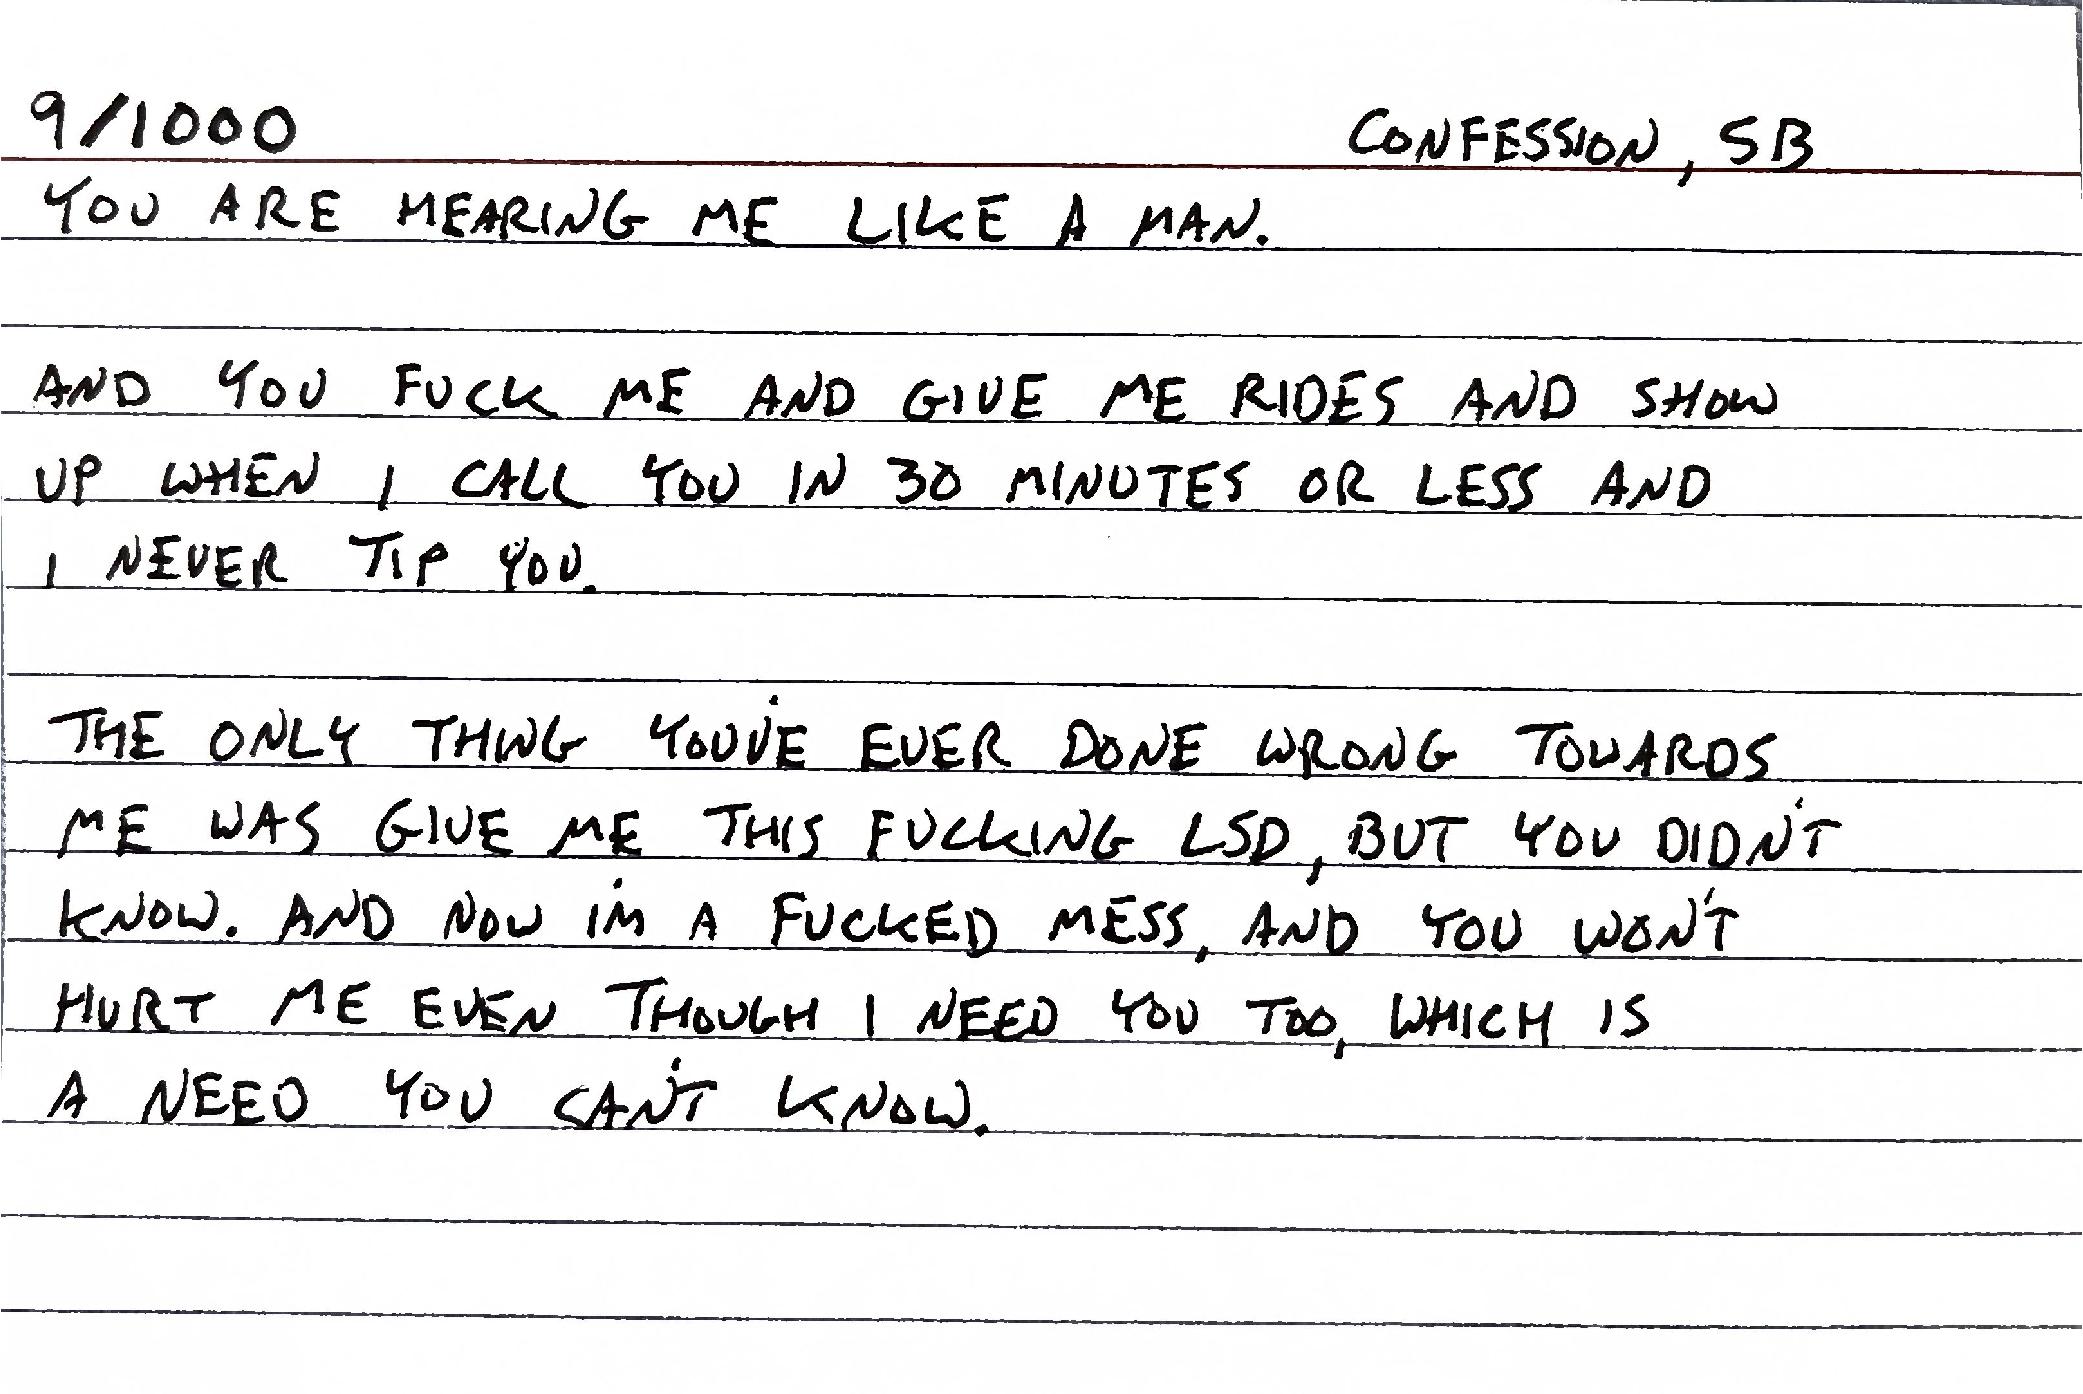 9/1000
CONFESSION, SB
YOU ARE HEARING ME LIKE A MAN.
AND YOU FUCK ME AND GIVE ME RIDES AND SHOW
UP WHEN I CALL YOU IN 30 MINUTES OR LESS AND
I NEVER TIP YOU.
THE ONLY THING YOU'VE EVER DONE WRONG TOWARDS
ME WAS GIVE ME THIS FUCKING LSD, BUT YOU DIDN'T
KNOW. AND NOW I'M A FUCKED MESS, AND YOU WON'T
HURT ME EVEN THOUGH I NEED YOU TOO, WHICH IS
A NEED YOU CAN'T KNOW.